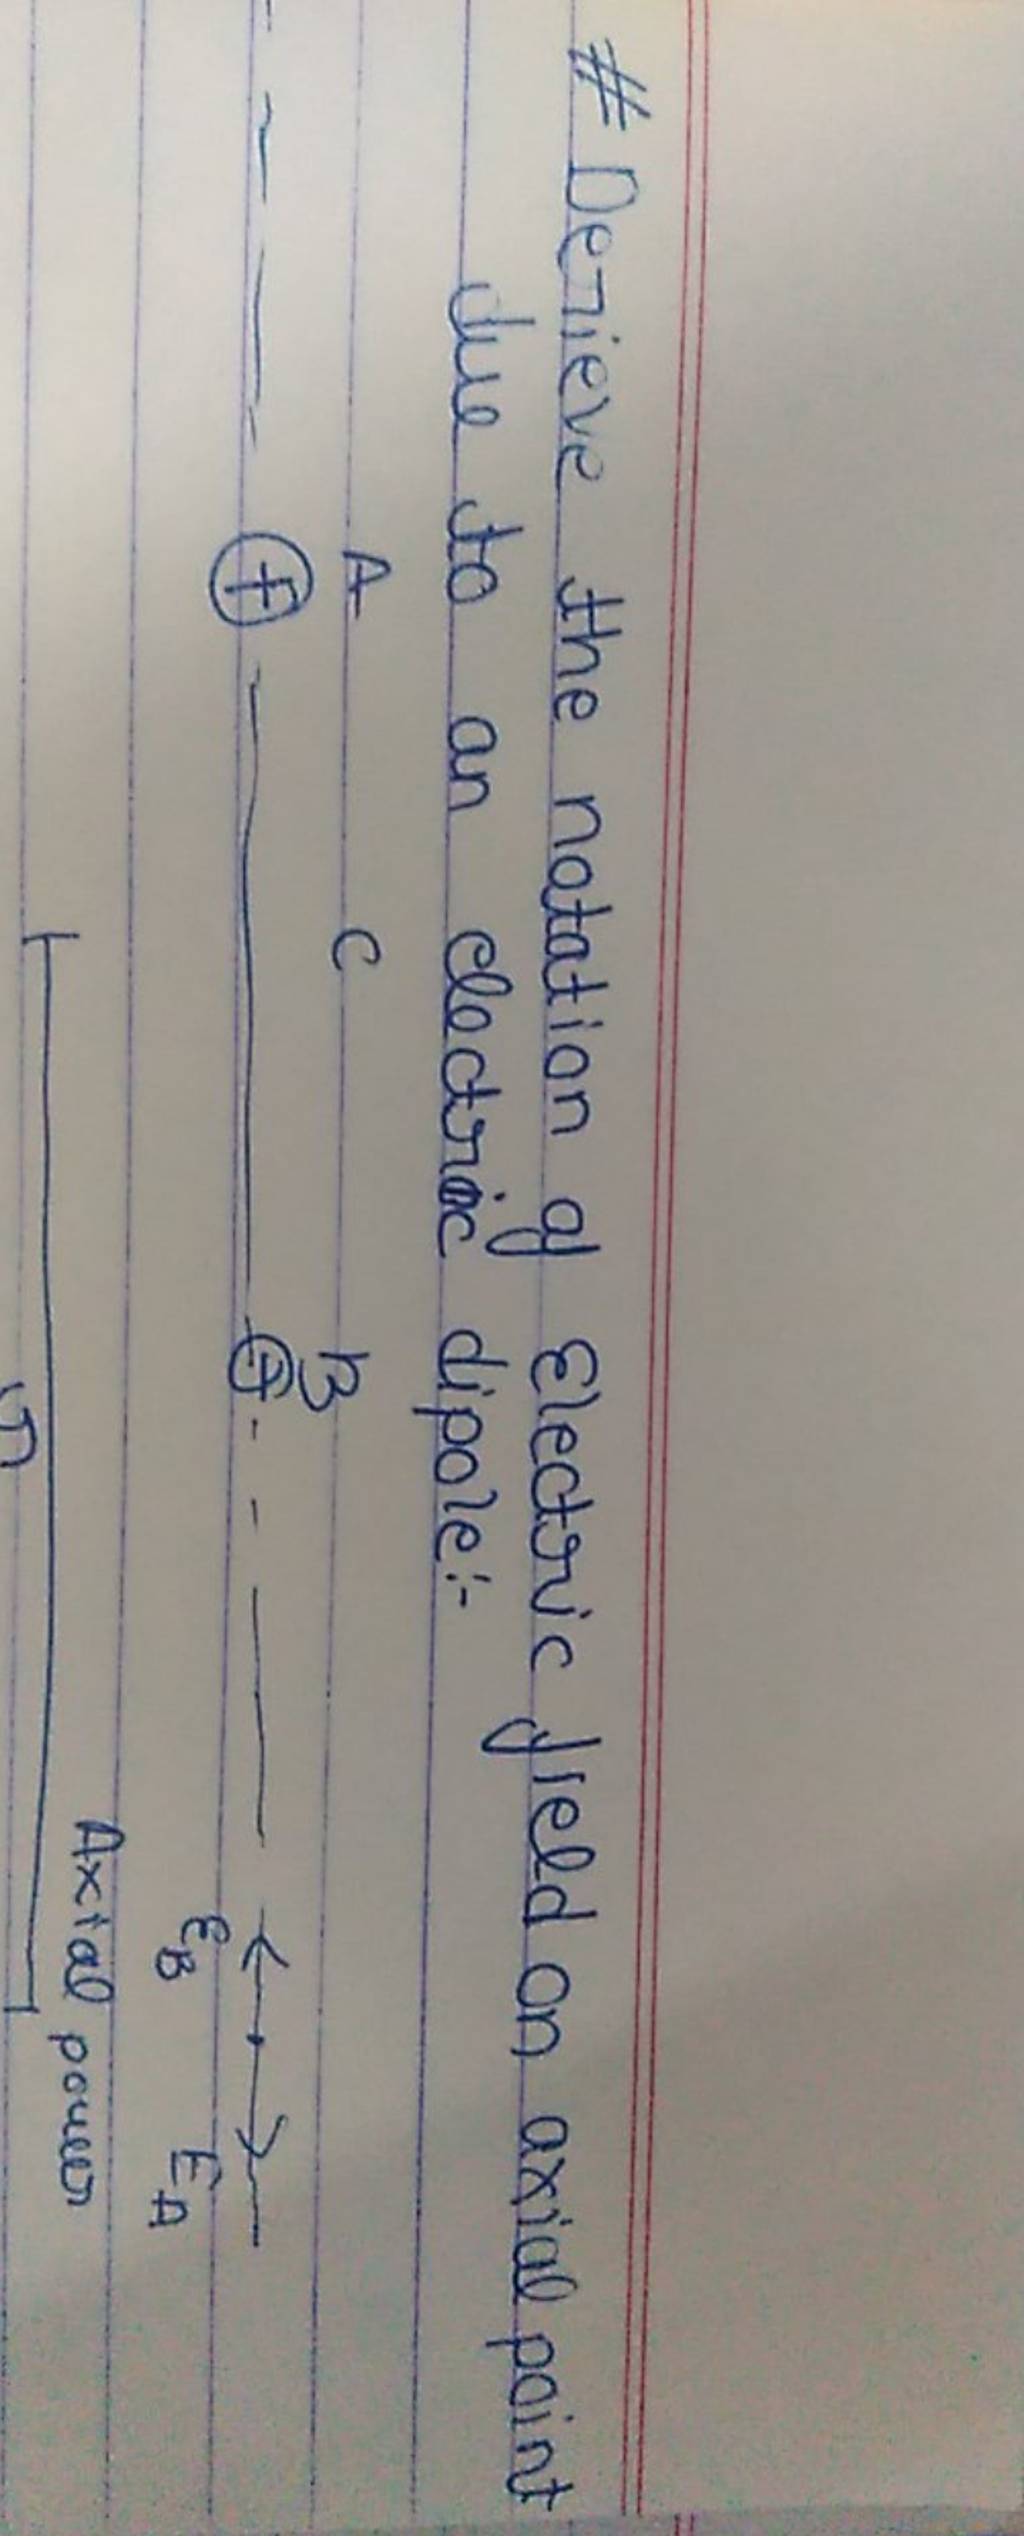 # Derieve the notation of Electric field on axial point
due to an electric dipole:-
A C B
+ +
EB EA
Axial power
r